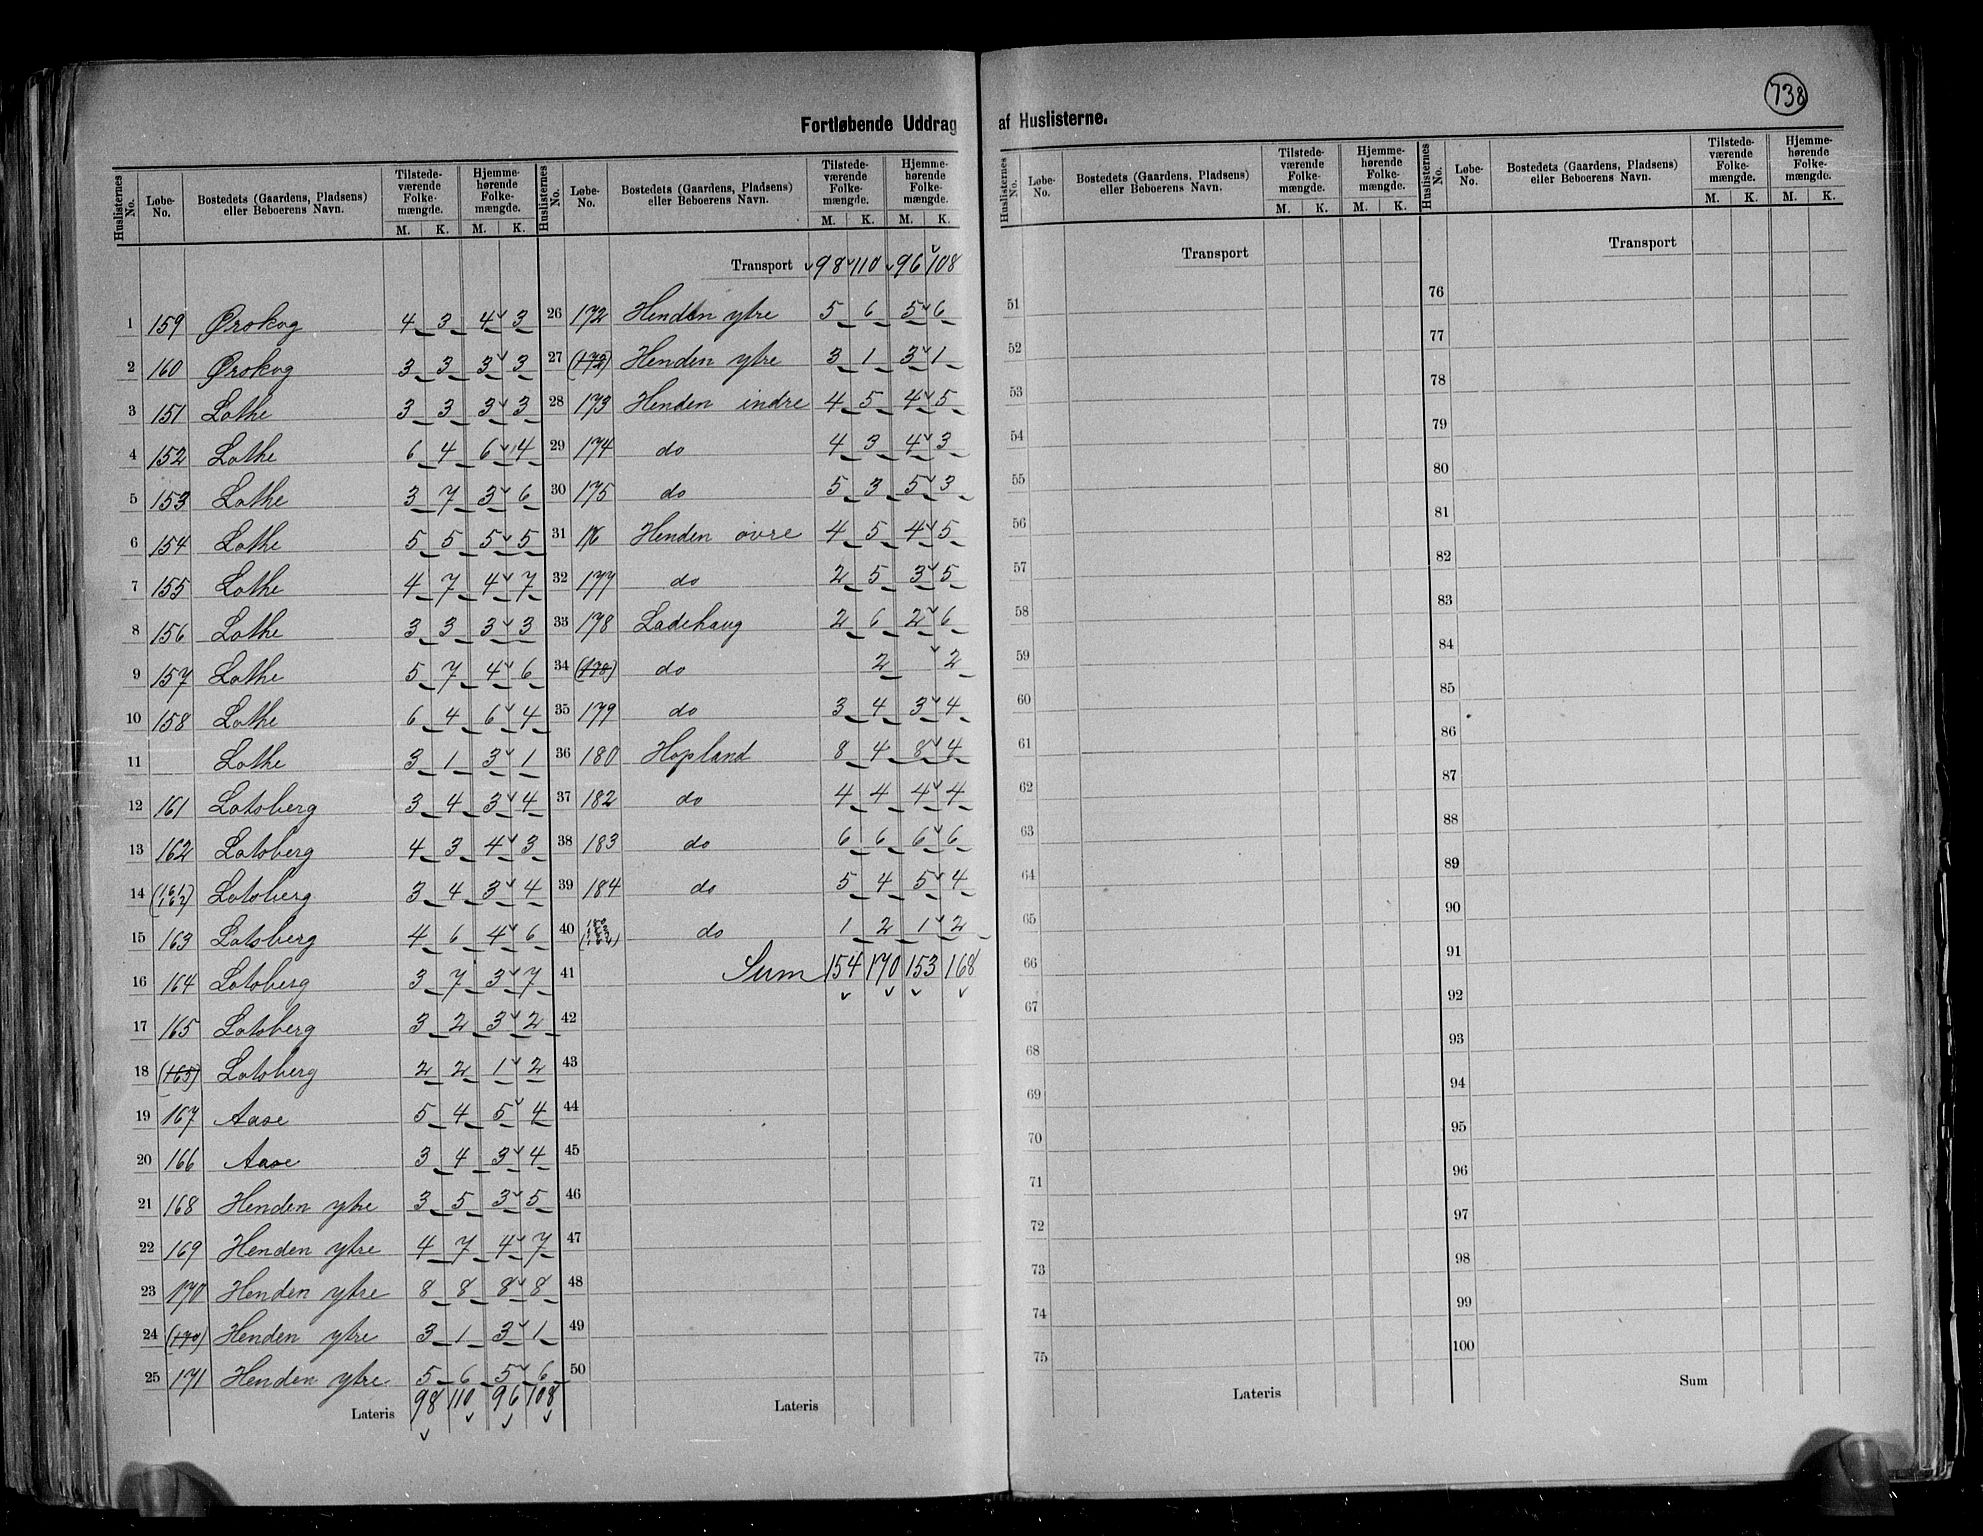 738
Fortløbende Uddrag af Huslisterne.
Huslisternes No. Løbe-No. Bostedets (Gaardens, Pladsens) eller Beboerens Navn. Tilstede-værende Folke-mængde. M. K. Hjemme-hørende Folke-mængde. M. K.
1 159 Ørskog 4 3 4 3
2 160 Ørskog 3 3 3 3
3 151 Lothe 3 3 3 3
4 152 Lothe 6 4 6 4
5 153 Lothe 3 7 3 6
6 154 Lothe 5 5 5 5
7 155 Lothe 4 7 4 7
8 156 Lothe 3 3 3 3
9 157 Lothe 5 7 4 6
10 158 Lothe 6 4 6 4
11 Lothe 3 1 3 1
12 161 Lotsberg 3 4 3 4
13 162 Lotsberg 4 3 4 3
14 (161 162) Lotsberg 3 4 3 4
15 163 Lotsberg 4 6 4 6
16 164 Lotsberg 3 7 3 7
17 165 Lotsberg 3 2 3 2
18 (165) Lotsberg 2 2 1 2
19 167 Aase 5 4 5 4
20 166 Aase 3 4 3 4
21 168 Henden ytre 3 5 3 5
22 169 Henden ytre 4 7 4 7
23 170 Henden ytre 8 8 8 8
24 (170) Henden ytre 3 1 3 1
25 171 Henden ytre 5 6 5 6
Lateris 98 110 96 108
Huslisternes No. Løbe-No. Bostedets (Gaardens, Pladsens) eller Beboerens Navn. Tilstede-værende Folke-mængde. M. K. Hjemme-hørende Folke-mængde. M. K.
Transport 98 110 96 108
26 172 Henden ytre 5 6 5 6
27 (172) Henden ytre 3 1 3 1
28 173 Henden indre 4 5 4 5
29 174 do 4 3 4 3
30 175 do 5 3 5 3
31 176 Henden øvre 4 5 4 5
32 177 do 2 5 3 5
33 178 Ladehaug 2 6 2 6
34 (178) do 2 2
35 179 do 3 4 3 4
36 180 Hopland 8 4 8 4
37 182 do 4 4 4 4
38 183 do 6 6 6 6
39 184 do 5 4 5 4
40 do 1 2 1 2
41 Sum 154 170 153 168
42
43
44
45
46
47
48
49
50
Lateris
Huslisternes No. Løbe-No. Bostedets (Gaardens, Pladsens) eller Beboerens Navn. Tilstede-værende Folke-mængde. M. K. Hjemme-hørende Folke-mængde. M. K.
Transport
51
52
53
54
55
56
57
58
59
60
61
62
63
64
65
66
67
68
69
70
71
72
73
74
75
Lateris
Huslisternes No. Løbe-No. Bostedets (Gaardens, Pladsens) eller Beboerens Navn. Tilstede-værende Folke-mængde. M. K. Hjemme-hørende Folke-mængde. M. K.
Transport
76
77
78
79
80
81
82
83
84
85
86
87
88
89
90
91
92
93
94
95
96
97
98
99
100
Sum